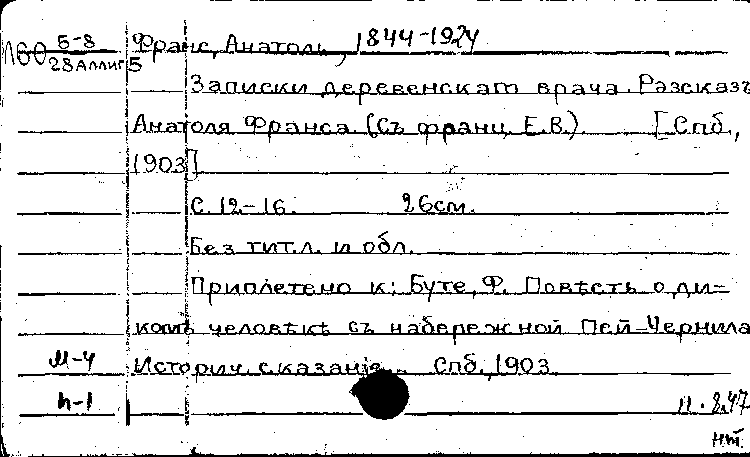 П60 5-8 Франс, Анатоль, 1844-1924
28 Аллиг 5
Записки деревенскаго врача. Разсказъ
Анатоля Франса. (Съ франц. Е.В.) [Спб.,
1903]
С. 12-16. 26см.
Без тит.л. и обл.
Приплетено к: Буте, Ф. Повѣсть о ди-
комъ человѣкѣ съ набережной Пей-Чернила
М-4 Историч. сказанiе. Спб., 1903
h-1 11.8.47
нт.